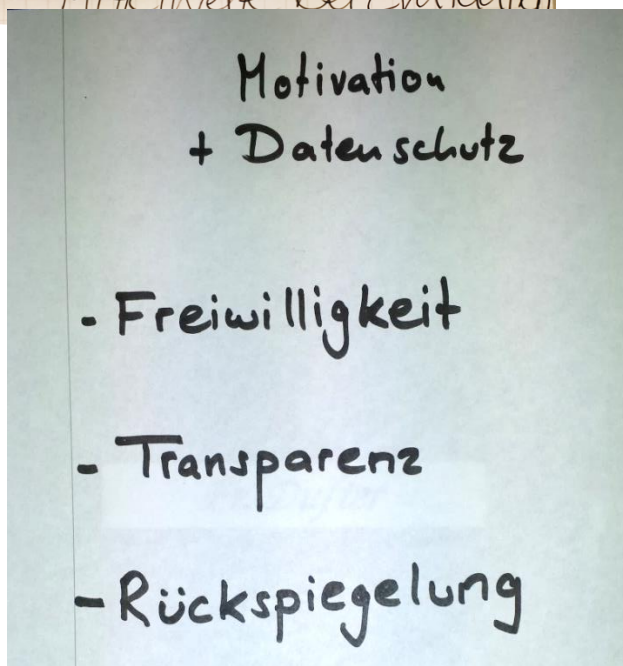 Motivation
+ Datenschutz
- Freiwilligkeit
- Transparenz
- Rückspiegelung